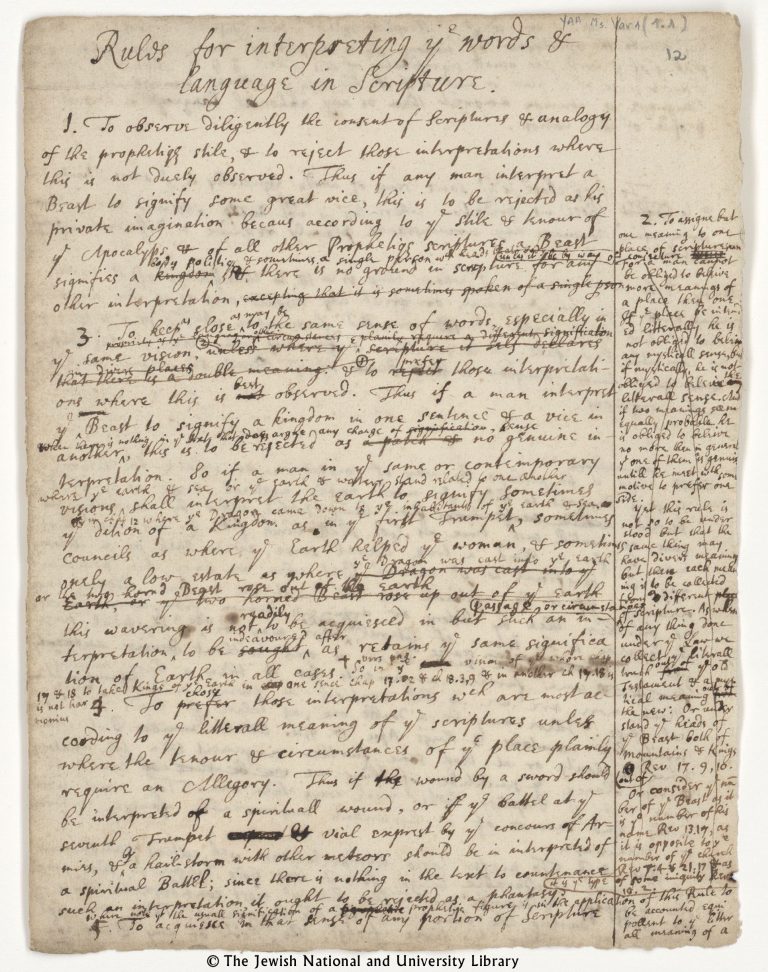 Yah. Ms. Var. 1 (
12
Rules for interpreting yᵉ words &
language in Scripture.
1. To observe diligently the consent of Scriptures & analogy
of the prophetiqʒ stile, & to reject those interpretations where
this is not duely observed. Thus if any man interpret a
Beast to signify some great vice, this is to be rejected as his
private imagination becaus according to yᵉ stile & tenour of
yᵉ Apocalyps & of all other Prophetiqʒ scriptures a Beast
body politiqʒ & sometimes a single person wch heads that body
signifies a kingdom & there is no ground in scripture for any
other interpretation, excepting that it is sometimes spoken of a single person
3. To keep as close as may be to the same sense of words, especially in
yᵉ same vision, unless where yᵉ scripture it self declares
that there is a double meaning, & to reject prefer those interpretati-
ons where this is best not observed. Thus if a man interpret
yᵉ Beast to signify a kingdom in one sentence & a vice in
another, when there is nothing in yᵉ text that does argue any change of signification, sense
this is to be rejected as no genuine in-
terpretation. So if a man in yᵉ same or contemporary
visions, where yᵉ earth & sea or yᵉ earth & waters stand related to one another
shall interpret the Earth to signify sometimes
yᵉ dition of a Kingdom as in yᵉ first Trumpet, sometimes
councils as where yᵉ Earth helped yᵉ woman, & sometimes
onely a low estate as where yᵉ Dragon was cast into yᵉ earth
or the two horned Beast rose out of the Earth
Earth, or yᵉ two horned Beast rose up out of yᵉ earth
this wavering is not readily to be acquiesced in but such an in-
terpretation to be sought indeavoured after as retains yᵉ same significa
tion of Earth in all cases.
4. To prefer chose those interpretations wch are most ac-
cording to yᵉ litterall meaning of yᵉ scriptures unless
where the tenour & circumstances of yᵉ place plainly
require an Allegory. Thus if the wound by a sword should
be interpreted of a spirituall wound, or if yᵉ battel at yᵉ
seventh Trumpet & vial exprest by yᵉ concours of Ar-
mies, & of a hail-storm with other meteors should be interpreted of
a spiritual Battel; since there is nothing in the text to countenance
such an interpretation, it ought to be rejected as a phantasy
5. To acquiesce in that sense of any portion of Scripture
2. To assigne but
one meaning to one
place of scripture
for a man cannot
be obliged to beleive
more meanings of
a place then one
ed litterally he is
not obliged to beleive
any mysticall sense,
if mystically, he is not
obliged to beleive the
litterall sense. And
if two meanings seem
equally probable he
is obliged to beleive
no more then in general
yᵉ one of them is genuine
untill he meet with some
motive to prefer one
side.
Yet this rule is
not so to be under
stood but that the
same thing may
have divers meanings
but then each mean
ing is to be collected
from different
of Scripture. As when
of any thing done
under yᵉ Law we
collect yᵉ litterall
truth out of yᵉ old
Testament & a mys
tical meaning out of
the new: Or under
stand yᵉ heads of
yᵉ Beast both of
Mountains & Kings
out of Rev 17. 9, 16.
Or consider yᵉ num
ber of yᵉ Beast as it
is yᵉ number of his
name Rev 13.17, as
it is opposite to yᵉ
number of yᵉ church
Rev 7.4 & 21.17
of this Rule to
be accounted equi
pollent to yᵉ litter
all meaning of a
© The Jewish National and University Library